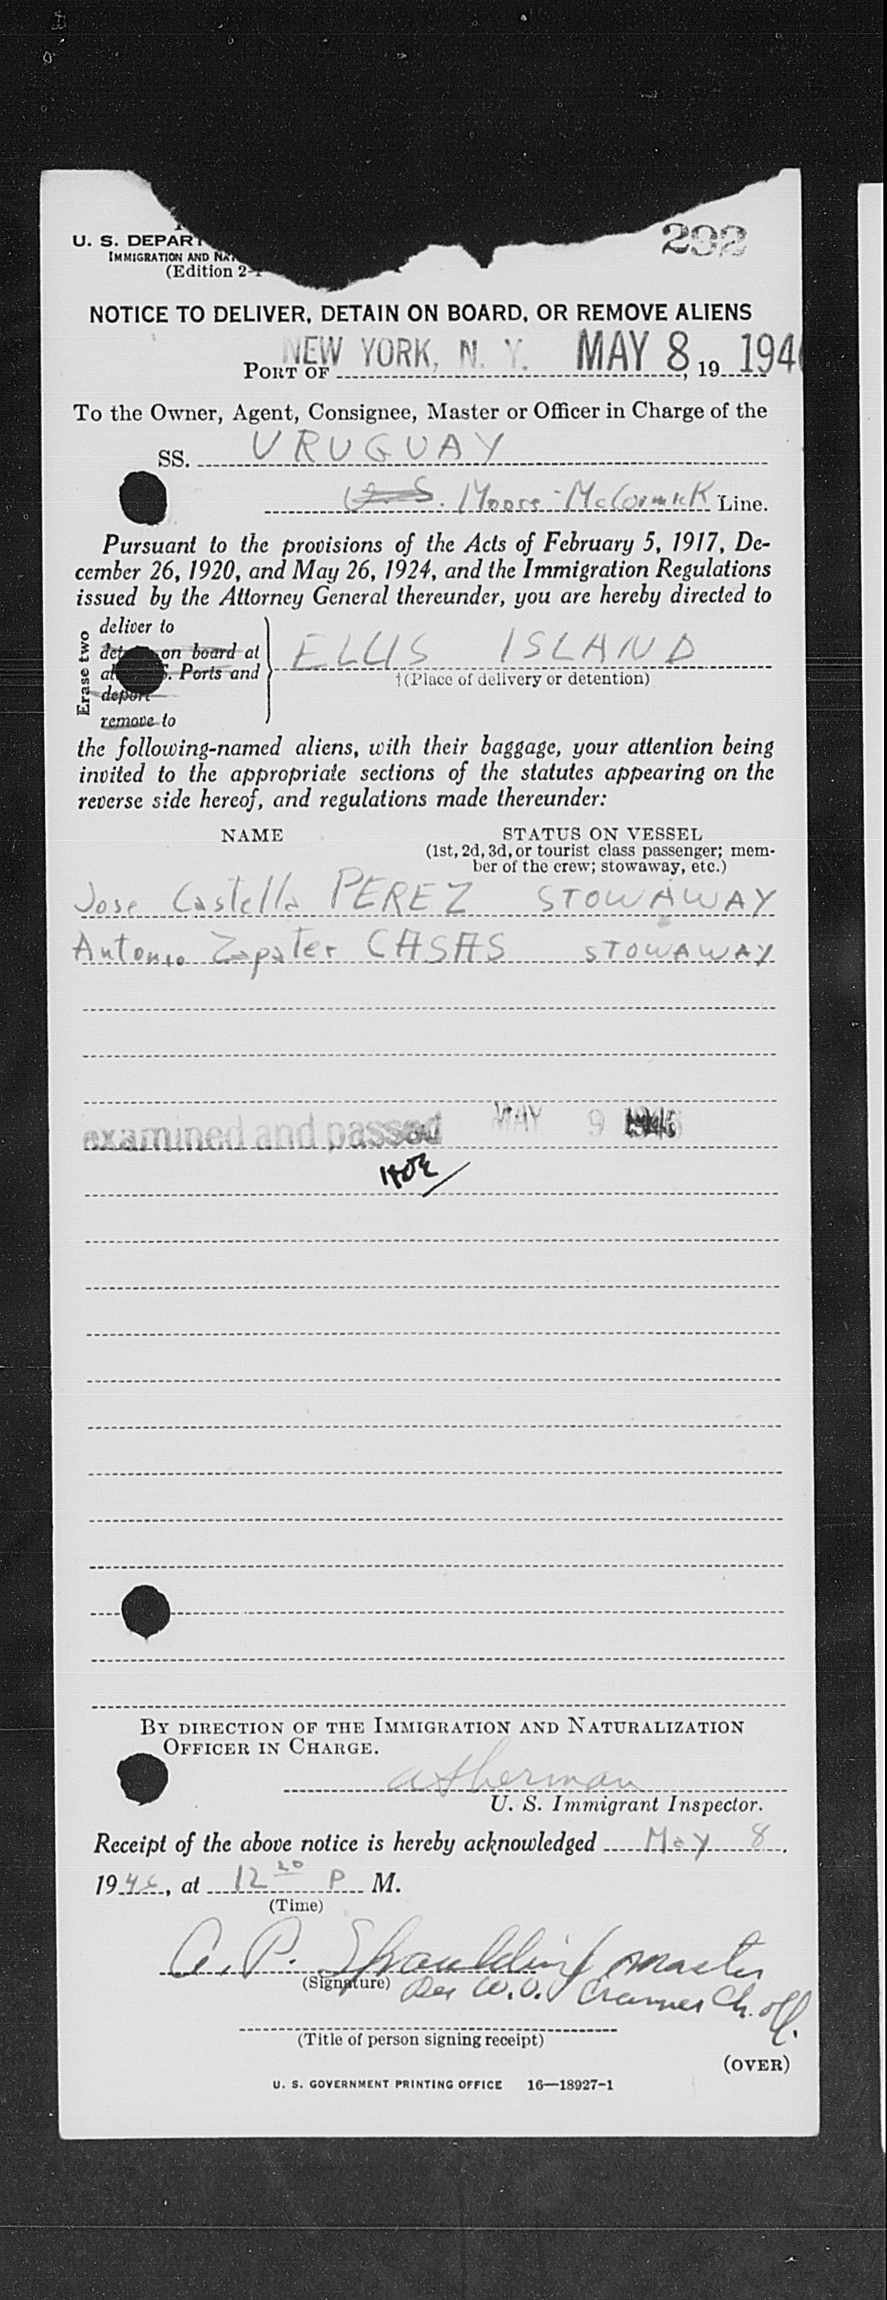 292
U. S. DEPAR
IMMIGRATION AND NA
(Edition 2-1
NOTICE TO DELIVER, DETAIN ON BOARD, OR REMOVE ALIENS
PORT OF NEW YORK, N. Y. MAY 8, 19 194
To the Owner, Agent, Consignee, Master or Officer in Charge of the
SS. URUGUAY
U.S. Moore-McCormick Line.
Pursuant to the provisions of the Acts of February 5, 1917, De-
cember 26, 1920, and May 26, 1924, and the Immigration Regulations
issued by the Attorney General thereunder, you are hereby directed to
Erase two
deliver to
det on board at
al S. Ports and
deport
remove to
ELLIS ISLAND
†(Place of delivery or detention)
the following-named aliens, with their baggage, your attention being
invited to the appropriate sections of the statutes appearing on the
reverse side hereof, and regulations made thereunder:
NAME STATUS ON VESSEL
(1st, 2d, 3d, or tourist class passenger; mem-
ber of the crew; stowaway, etc.)
Jose Castella PEREZ STOWAWAY
Antonio Zapater CASAS STOWAWAY
examined and passed MAY 9 1946
BY DIRECTION OF THE IMMIGRATION AND NATURALIZATION
OFFICER IN CHARGE.
A Sherman
U. S. Immigrant Inspector.
Receipt of the above notice is hereby acknowledged May 8,
1946, at 12 20 P M.
(Time)
A. P. Spaulding master
(Signature) Per W. O. Cramer Ch. off.
(Title of person signing receipt)
(OVER)
U. S. GOVERNMENT PRINTING OFFICE 16—18927-1